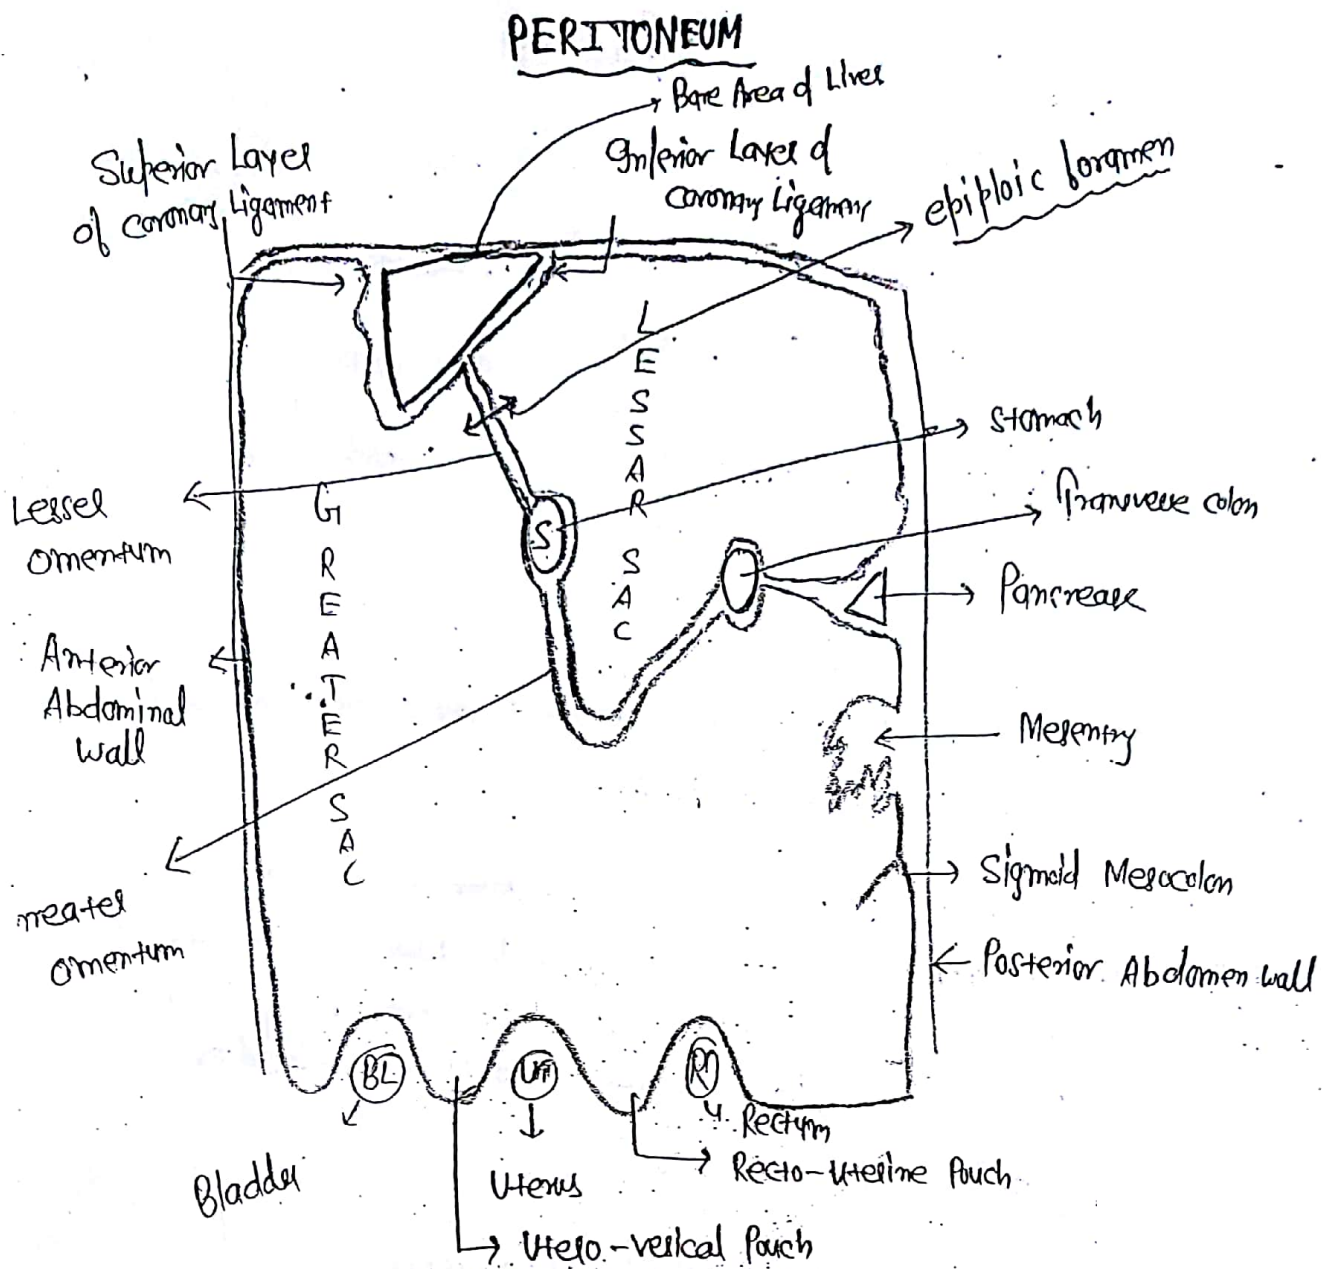 PERITONEUM
Bare Area of Liver
Superior Layer
of coronary Ligament
Inferior Layer of
coronary Ligament
epiploic foramen
LESSAR SAC
Stomach
Transverse colon
Lesser
omentum
GREATER SAC
S
Pancrease
Anterior
Abdominal
wall
Mesentry
Sigmoid Mesocolon
reater
omentum
Posterior Abdomen wall
BL
Ut
Rectum
Recto-Uterine Pouch
Bladder
Uterus
Utero-vesical Pouch